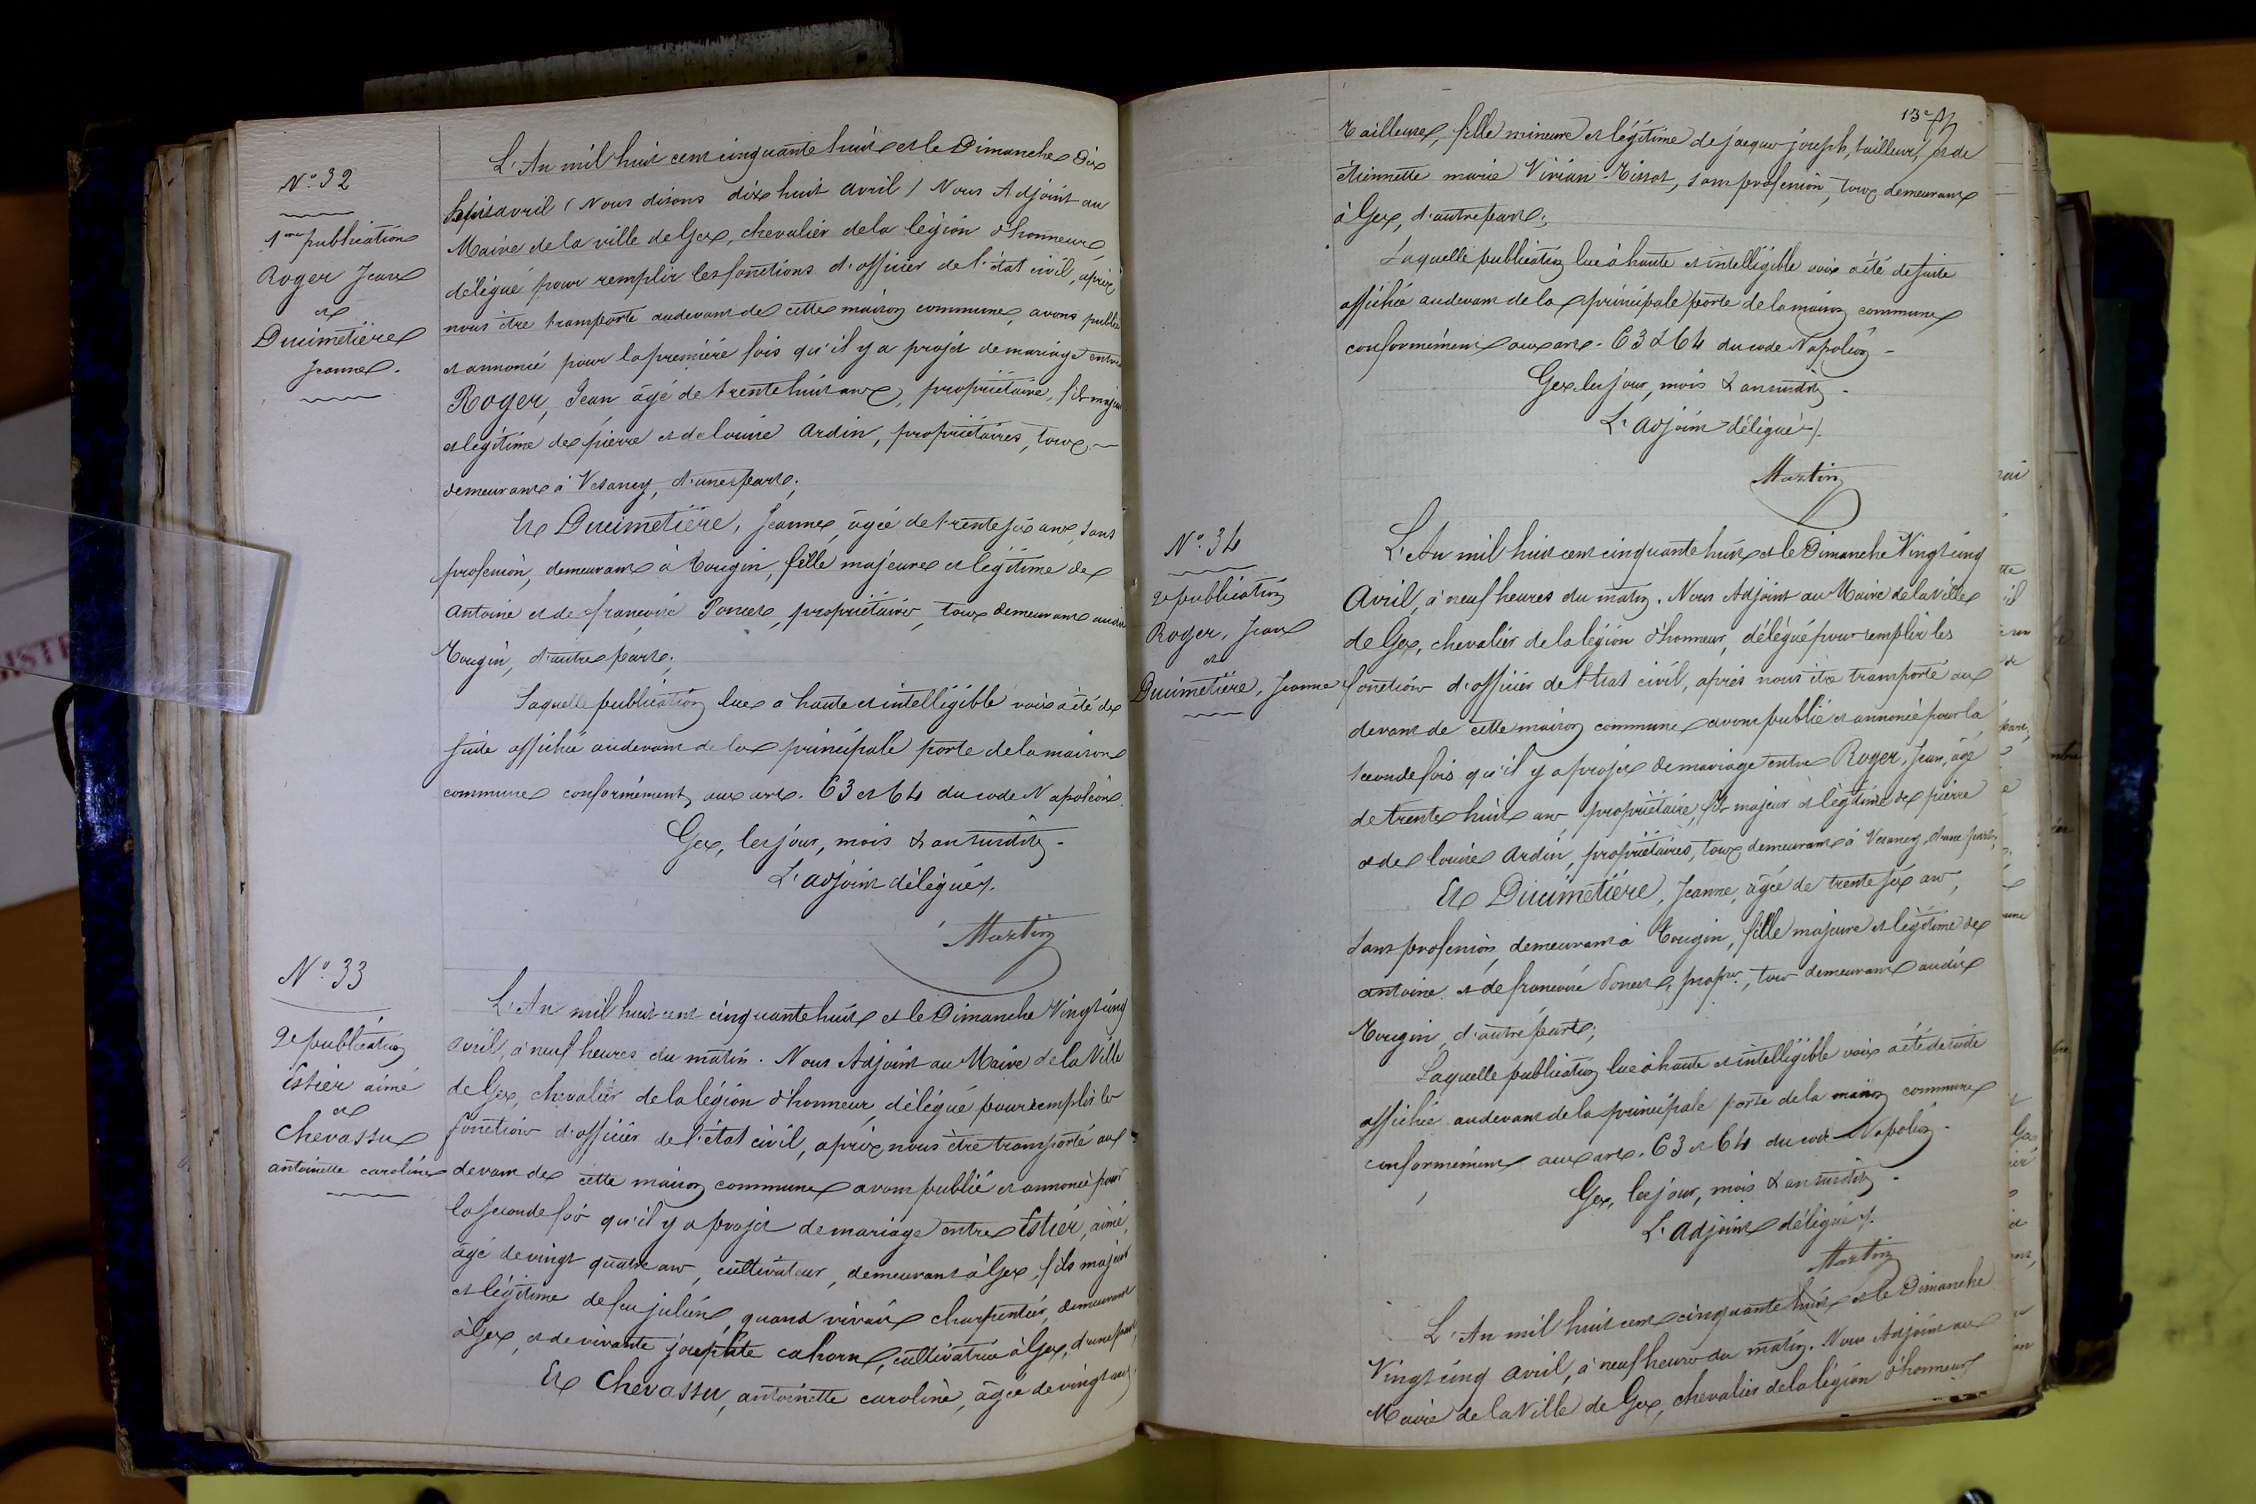 N.o 32
1ere publication
Roger Jean
et
Ducimetière
Jeanne.
L'An mil huit cent cinquante huit et le Dimanche Dix
huit avril (Nous disons dix huit avril) Nous Adjoint au
Maire de la ville de Gex, chevalier de la légion d'honneur
délégué pour remplir les fonctions d'officier de l'état civil, après
nous être transporté au devant de cette maison commune, avons publié
et annoncé pour la première fois qu'il y a projet de mariage entre
Roger, Jean âgé de trente huit ans, propriétaire, fils majeur
et légitime de pierre et de louise Ardin, propriétaires, tous
demeurant à Vesancy, d'une part;
Et Ducimetière, Jeanne, âgée de trente six ans, sans
profession, demeurant à Tougin, fille majeure et légitime de
Antoine et de françoise Poncet, propriétaires, tous demeurant audit
Tougin, d'autre part;
Laquelle publication lue à haute et intelligible voix a été de
suite affichée au devant de la principale porte de la maison
commune conformément aux art. 63 et 64 du code Napoléon.
Gex, les jour, mois & an susdits.
L'adjoint délégué.
Martin
N.o 33
2e publication
Estier aimé
et
Chevassu
antoinette caroline
L'An mil huit cent cinquante huit et le Dimanche Vingt cinq
avril, à neuf heures du matin. Nous Adjoint au Maire de la Ville
de Gex, chevalier de la légion d'honneur, délégué pour remplir les
fonctions d'officier de l'état civil, après nous être transporté au
devant de cette maison commune avons publié et annoncé pour
la seconde fois qu'il y a projet de mariage entre Estier, aimé,
âgé de vingt quatre ans, cultivateur, demeurant à Gex, fils majeur
et légitime de feu julien, quand vivait charpentier, demeurant
à Gex, et de vivante josephte cahorn, cultivatrice à Gex, d'une part;
Et Chevassu, antoinette caroline, âgée de vingt ans,
13e
Tailleuse, fille mineure et légitime de jacques joseph, tailleur, et de
étiennette marie Vivian-Tissot, sans profession, tous demeurant
à Gex, d'autre part;
Laquelle publication lue à haute et intelligible voix a été de suite
affichée au devant de la principale porte de la maison commune
conformément aux art. 63 & 64 du code Napoléon.
Gex les jour, mois & an susdits.
L'adjoint délégué.
Martin
N.o 34
2e publication
Roger, Jean
et
Ducimetière, Jeanne
L'An mil huit cent cinquante huit et le Dimanche Vingt cinq
Avril, à neuf heures du matin. Nous Adjoint au Maire de la Ville
de Gex, chevalier de la légion d'honneur, délégué pour remplir les
fonctions d'officier de l'état civil, après nous être transporté au
devant de cette maison commune avons publié et annoncé pour la
seconde fois qu'il y a projet de mariage entre Roger, Jean, âgé
de trente huit ans propriétaire, fils majeur et légitime de pierre
et de louise Ardin, propriétaires, tous demeurant à Vesancy, d'une part;
Et Ducimetière, Jeanne, âgée de trente six ans,
sans profession, demeurant à Tougin, fille majeure et légitime de
antoine et de françoise Poncet, propres, tous demeurant audit
Tougin, d'autre part;
Laquelle publication lue à haute et intelligible voix a été de suite
affichée au devant de la principale porte de la maison commune
conformément aux art. 63 et 64 du code Napoléon.
Gex, les jour, mois & an susdits.
L'Adjoint délégué.
Martin
L'An mil huit cent cinquante huit et le Dimanche
Vingt cinq avril, à neuf heures du matin. Nous Adjoint au
Maire de la Ville de Gex, chevalier de la légion d'honneur